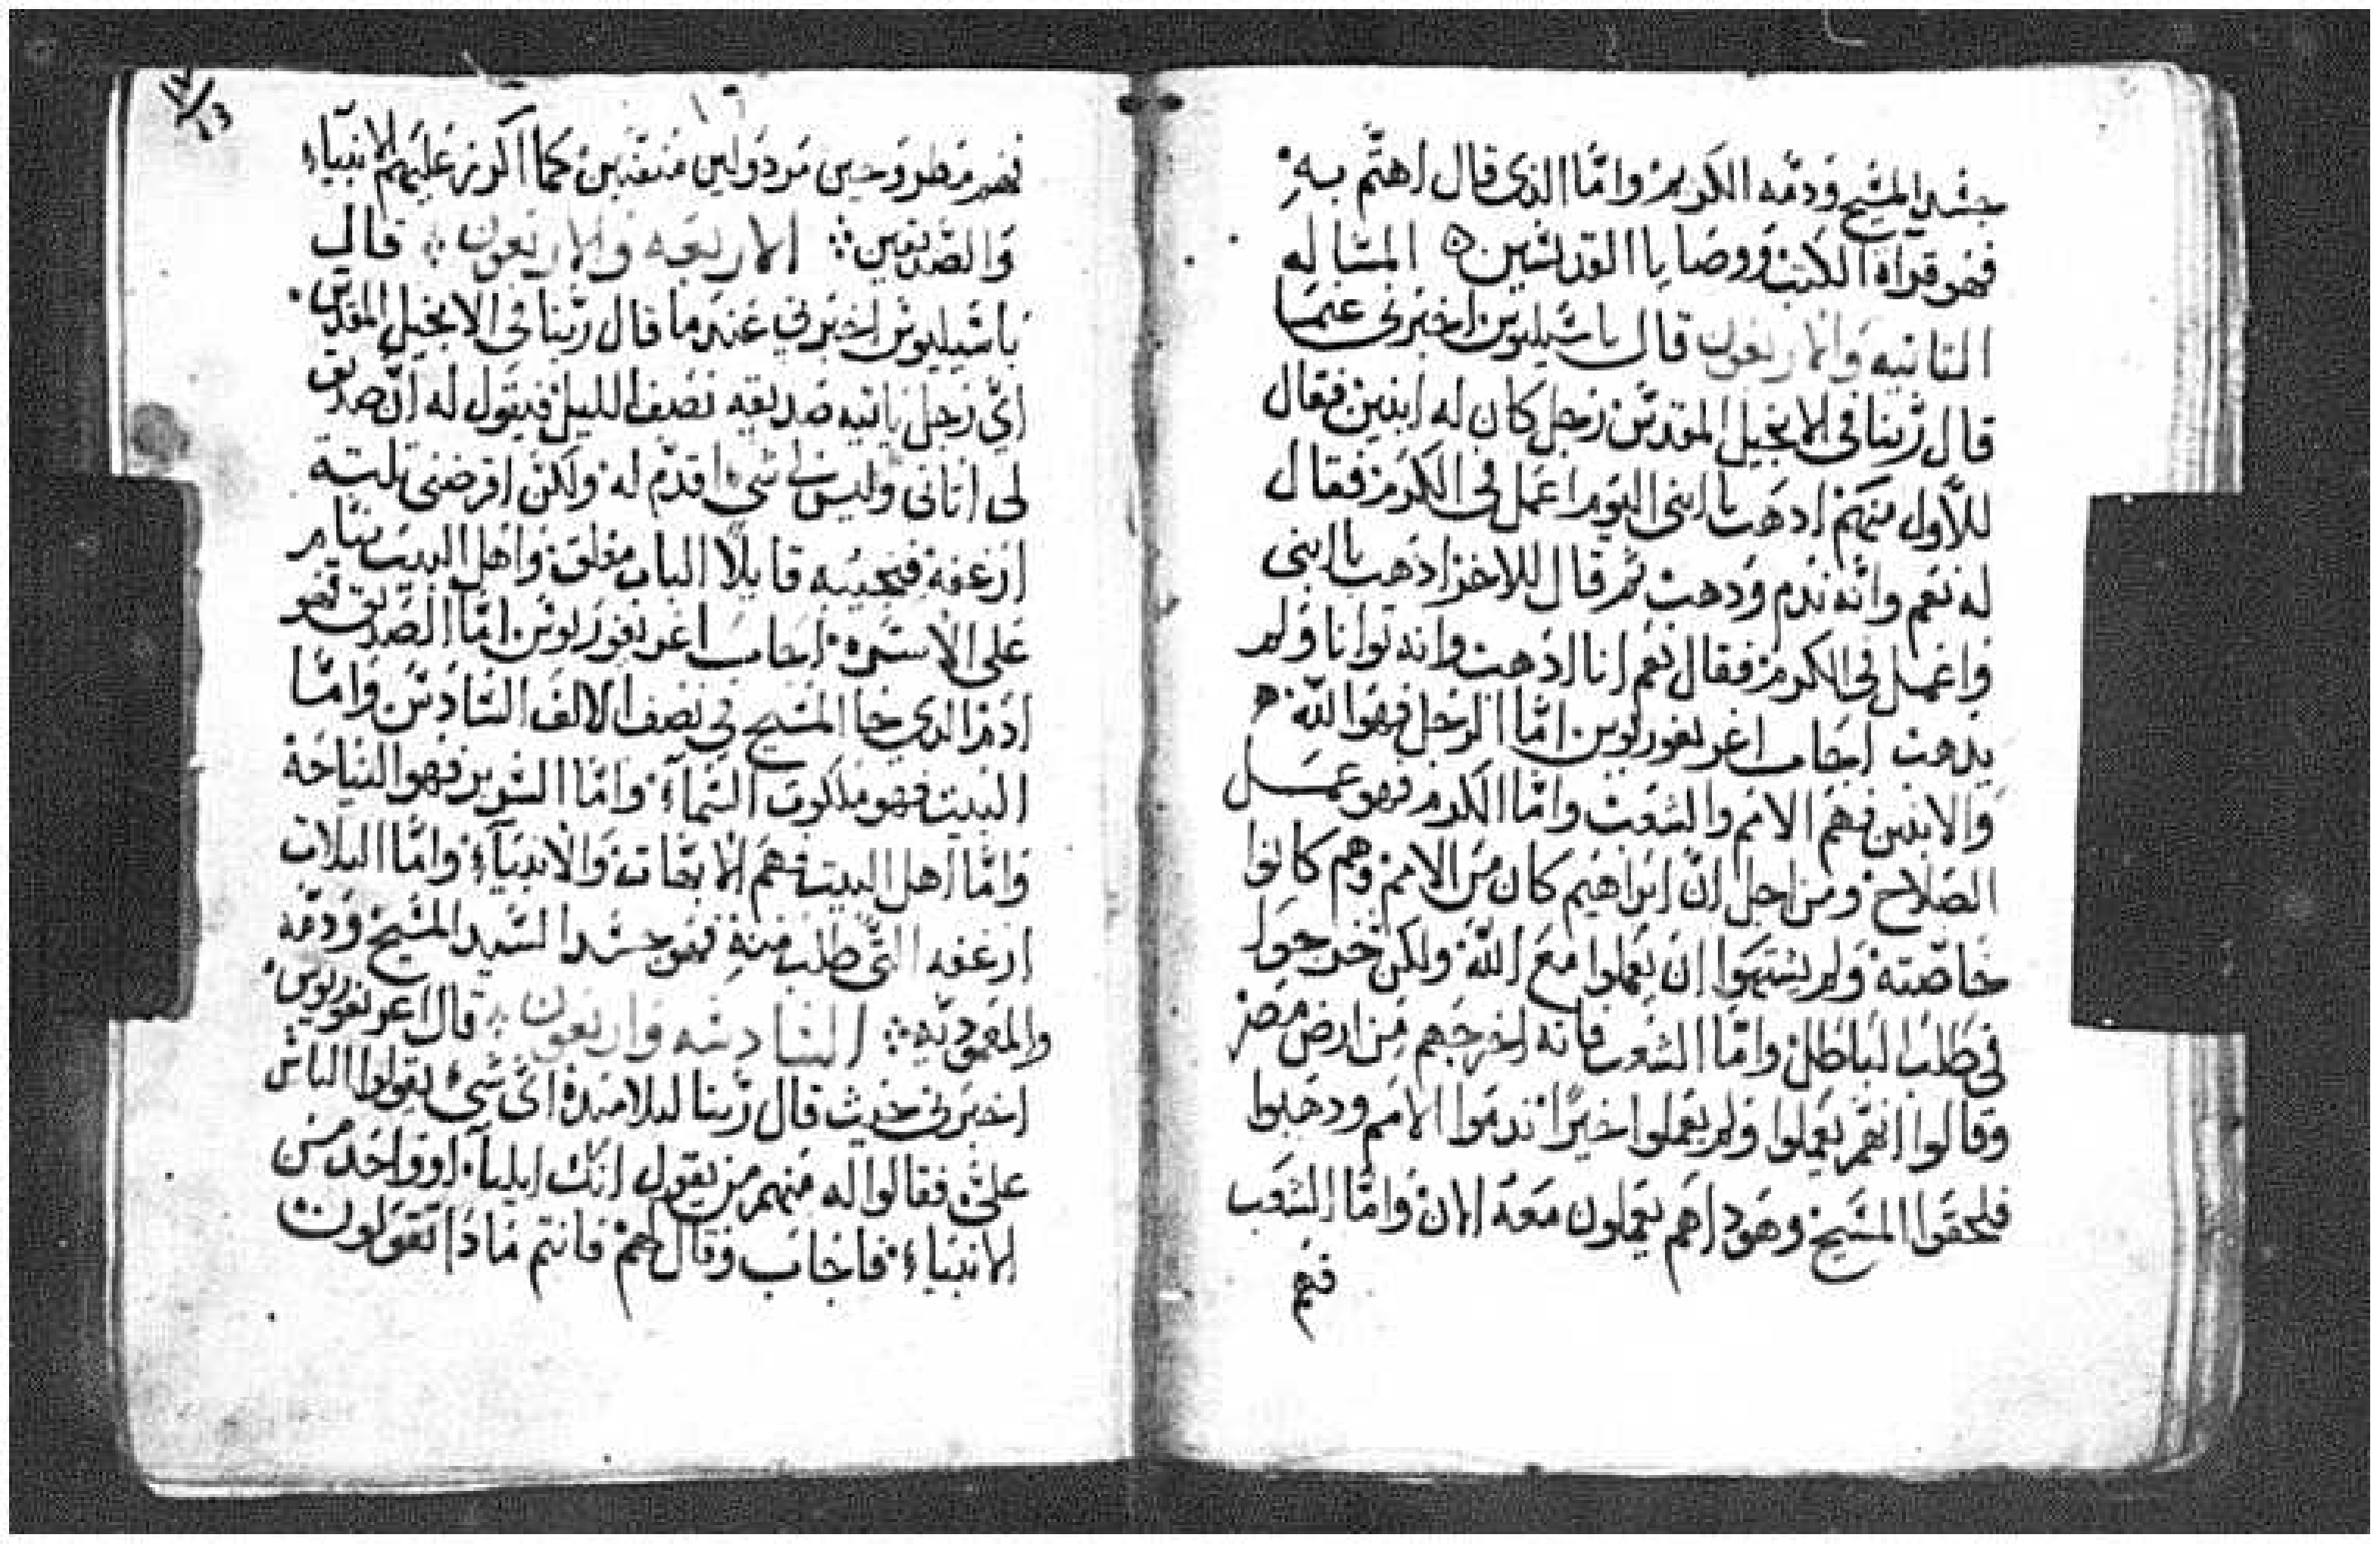 جسد المسيح ودمه الكريم واما الذى قال اهتم به
فهو قراة الكتب ووصايا القديسين ه المساله
الثانيه والاربعون قال باسيليوس اخبرنى عنما
قال ربنا فى الانجيل المقدس رجل كان له ابنين فقال
للاول منهم ادهب يا ابنى اليوم اعمل فى الكرم فقال
له نعم وانه ندم ودهب ثم قال للاخر اذهب يا ابنى
واعمل فى الكرم فقال نعم انا اذهب وانه توانا ولم
يدهب اجاب اغريغوريوس اما الرجل فهو الله
والابنين فهم الامم والشعب واما الكرم فهو عمل
الصلاح ومن اجل ان ابراهيم كان من الامم وهم كانوا
خاصته ولم يشتهوا ان يعملوا مع الله ولكن خرجوا
فى طلب الباطل واما الشعب فانه اخرجهم من ارض مصر
وقالوا نعم يعملوا ولم يعملوا خيرا ندموا الامم ودخلوا
فلحقوا المسيح وهوداهم يعملون معه الان واما الشعب
فهم
١٦
فهم مطروحين مردولين منتقبين كما اكرز عليهم الانبياء
والصديقين ۞ الاربعه والاربعون ۞ قال
باسيليوس اخبرني عند ما قال ربنا فى الانجيل المقدس
اي رجل ياتيه صديقه نصف الليل فيقول له ان صديق
لى اتانى وليس لى شي اقدم له ولكن اقرضنى تلتة
ارغفه فيجيبه قايلا الباب مغلق واهل البيت نيام
على الاسره اجاب اغريغوريوس اما الصديق فهو
ادم الدي جا المسيح في نصف الالف السادس واما
البيت فهو ملكوت السماء واما السرير فهو النياحة
واما اهل البيت فهم الابهات والانبياء واما التلات
ارغفه التى طلب منه فهو جسد السيد المسيح ودمه
والمعموديه ۞ السادسه واربعون ۞ قال اغريغوريوس
اخبرنى حديث قال ربنا لتلاميده اى شيء يقولوا الناس
علىّ فقالوا له منهم من يقول انك ايليا او واحد من
الانبياء فاجاب وقال لهم فانتم مادا تقولون